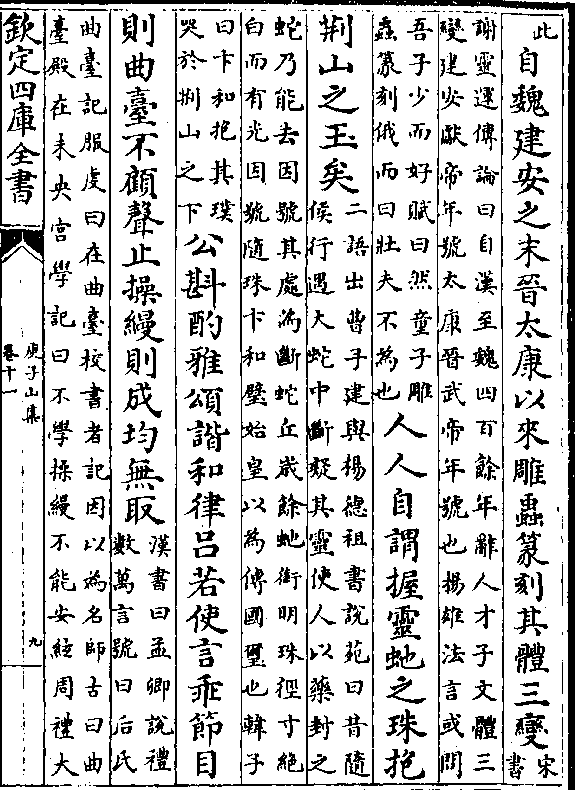 此自魏建安之末晉太康以來雕蟲篆刻其體三變宋書
謝靈運傳論曰自漢至魏四百餘年辭人才子文體三
變建安獻帝年號太康晉武帝年號也揚雄法言或問
吾子少而好賦曰然童子雕
蟲篆刻俄而曰壯夫不為也
人人自謂握靈虵之珠抱
荆山之玉矣
二語出曹子建與楊德祖書說苑曰昔隨
侯行遇大蛇中斷疑其靈使人以藥封之
蛇乃能去因號其處為斷蛇丘歲餘虵銜明珠徑寸絕
白而有光因號隨珠卞和璧始皇以為傳國璽也韓子
曰卞和抱其璞
哭於荆山之下
公斟酌雅頌諧和律呂若使言乖節目
則曲臺不顧聲止操縵則成均無取
漢書曰孟卿說禮
數萬言號曰后氏
曲臺記服虔曰在曲臺校書者記因以為名師古曰曲
臺殿在未央宮學記曰不學操縵不能安絃周禮大
欽定四庫全書
庾子山集
卷十一
九